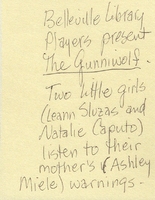 Belleville Library
Players present
The Gunniwolf.
Two little girls
(Leann Sluzas and
Natalie Caputo)
listen to their
mother's (Ashley
Miele) warnings.